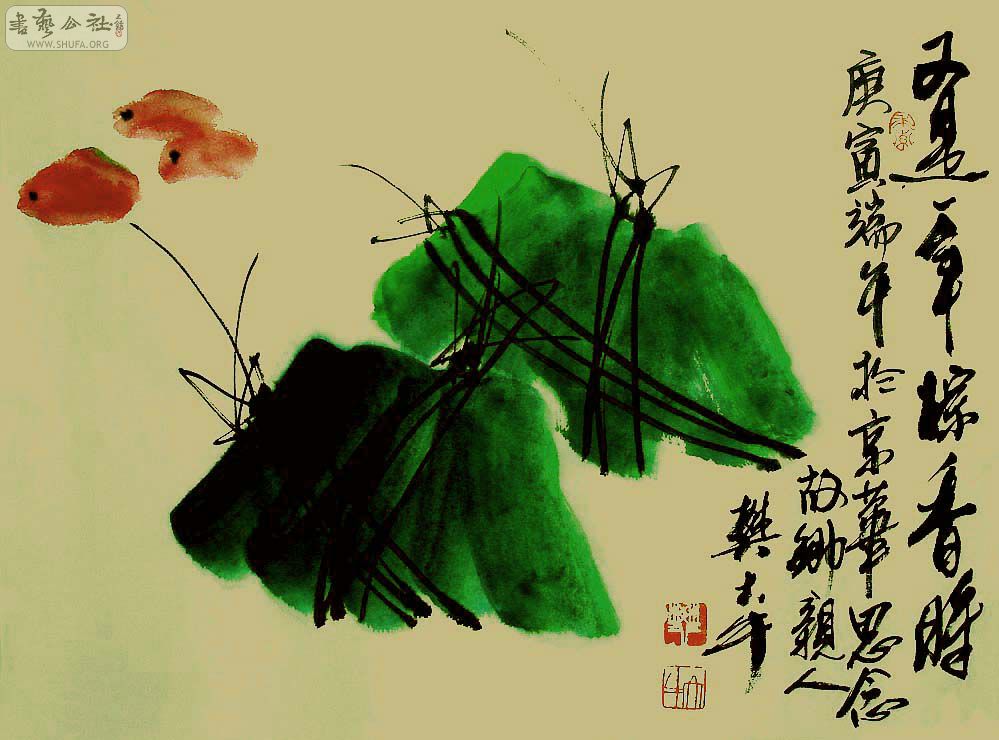 又是一年粽香时
庚寅端午於京华思念
故乡親人
樊大午
書藝公社
WWW.SHUFA.ORG